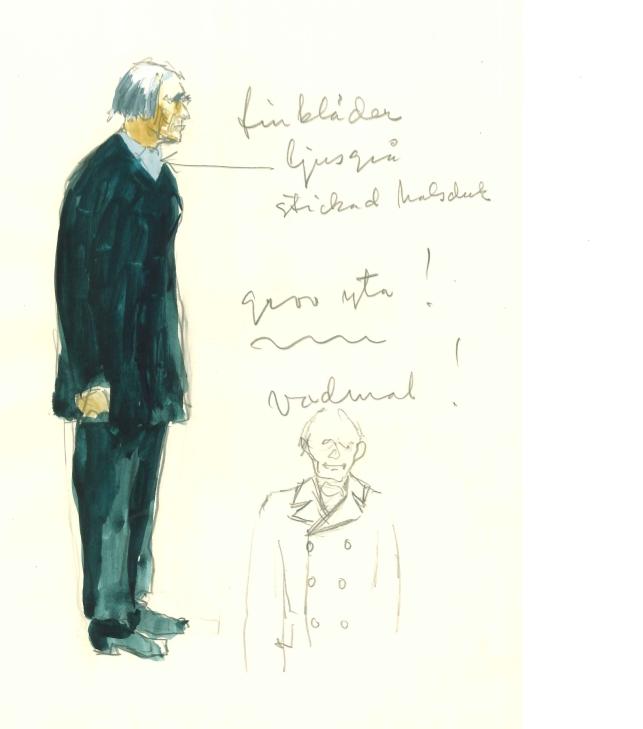 finkläder
ljusgrå
stickad halsduk
grov yta !
vadmal !